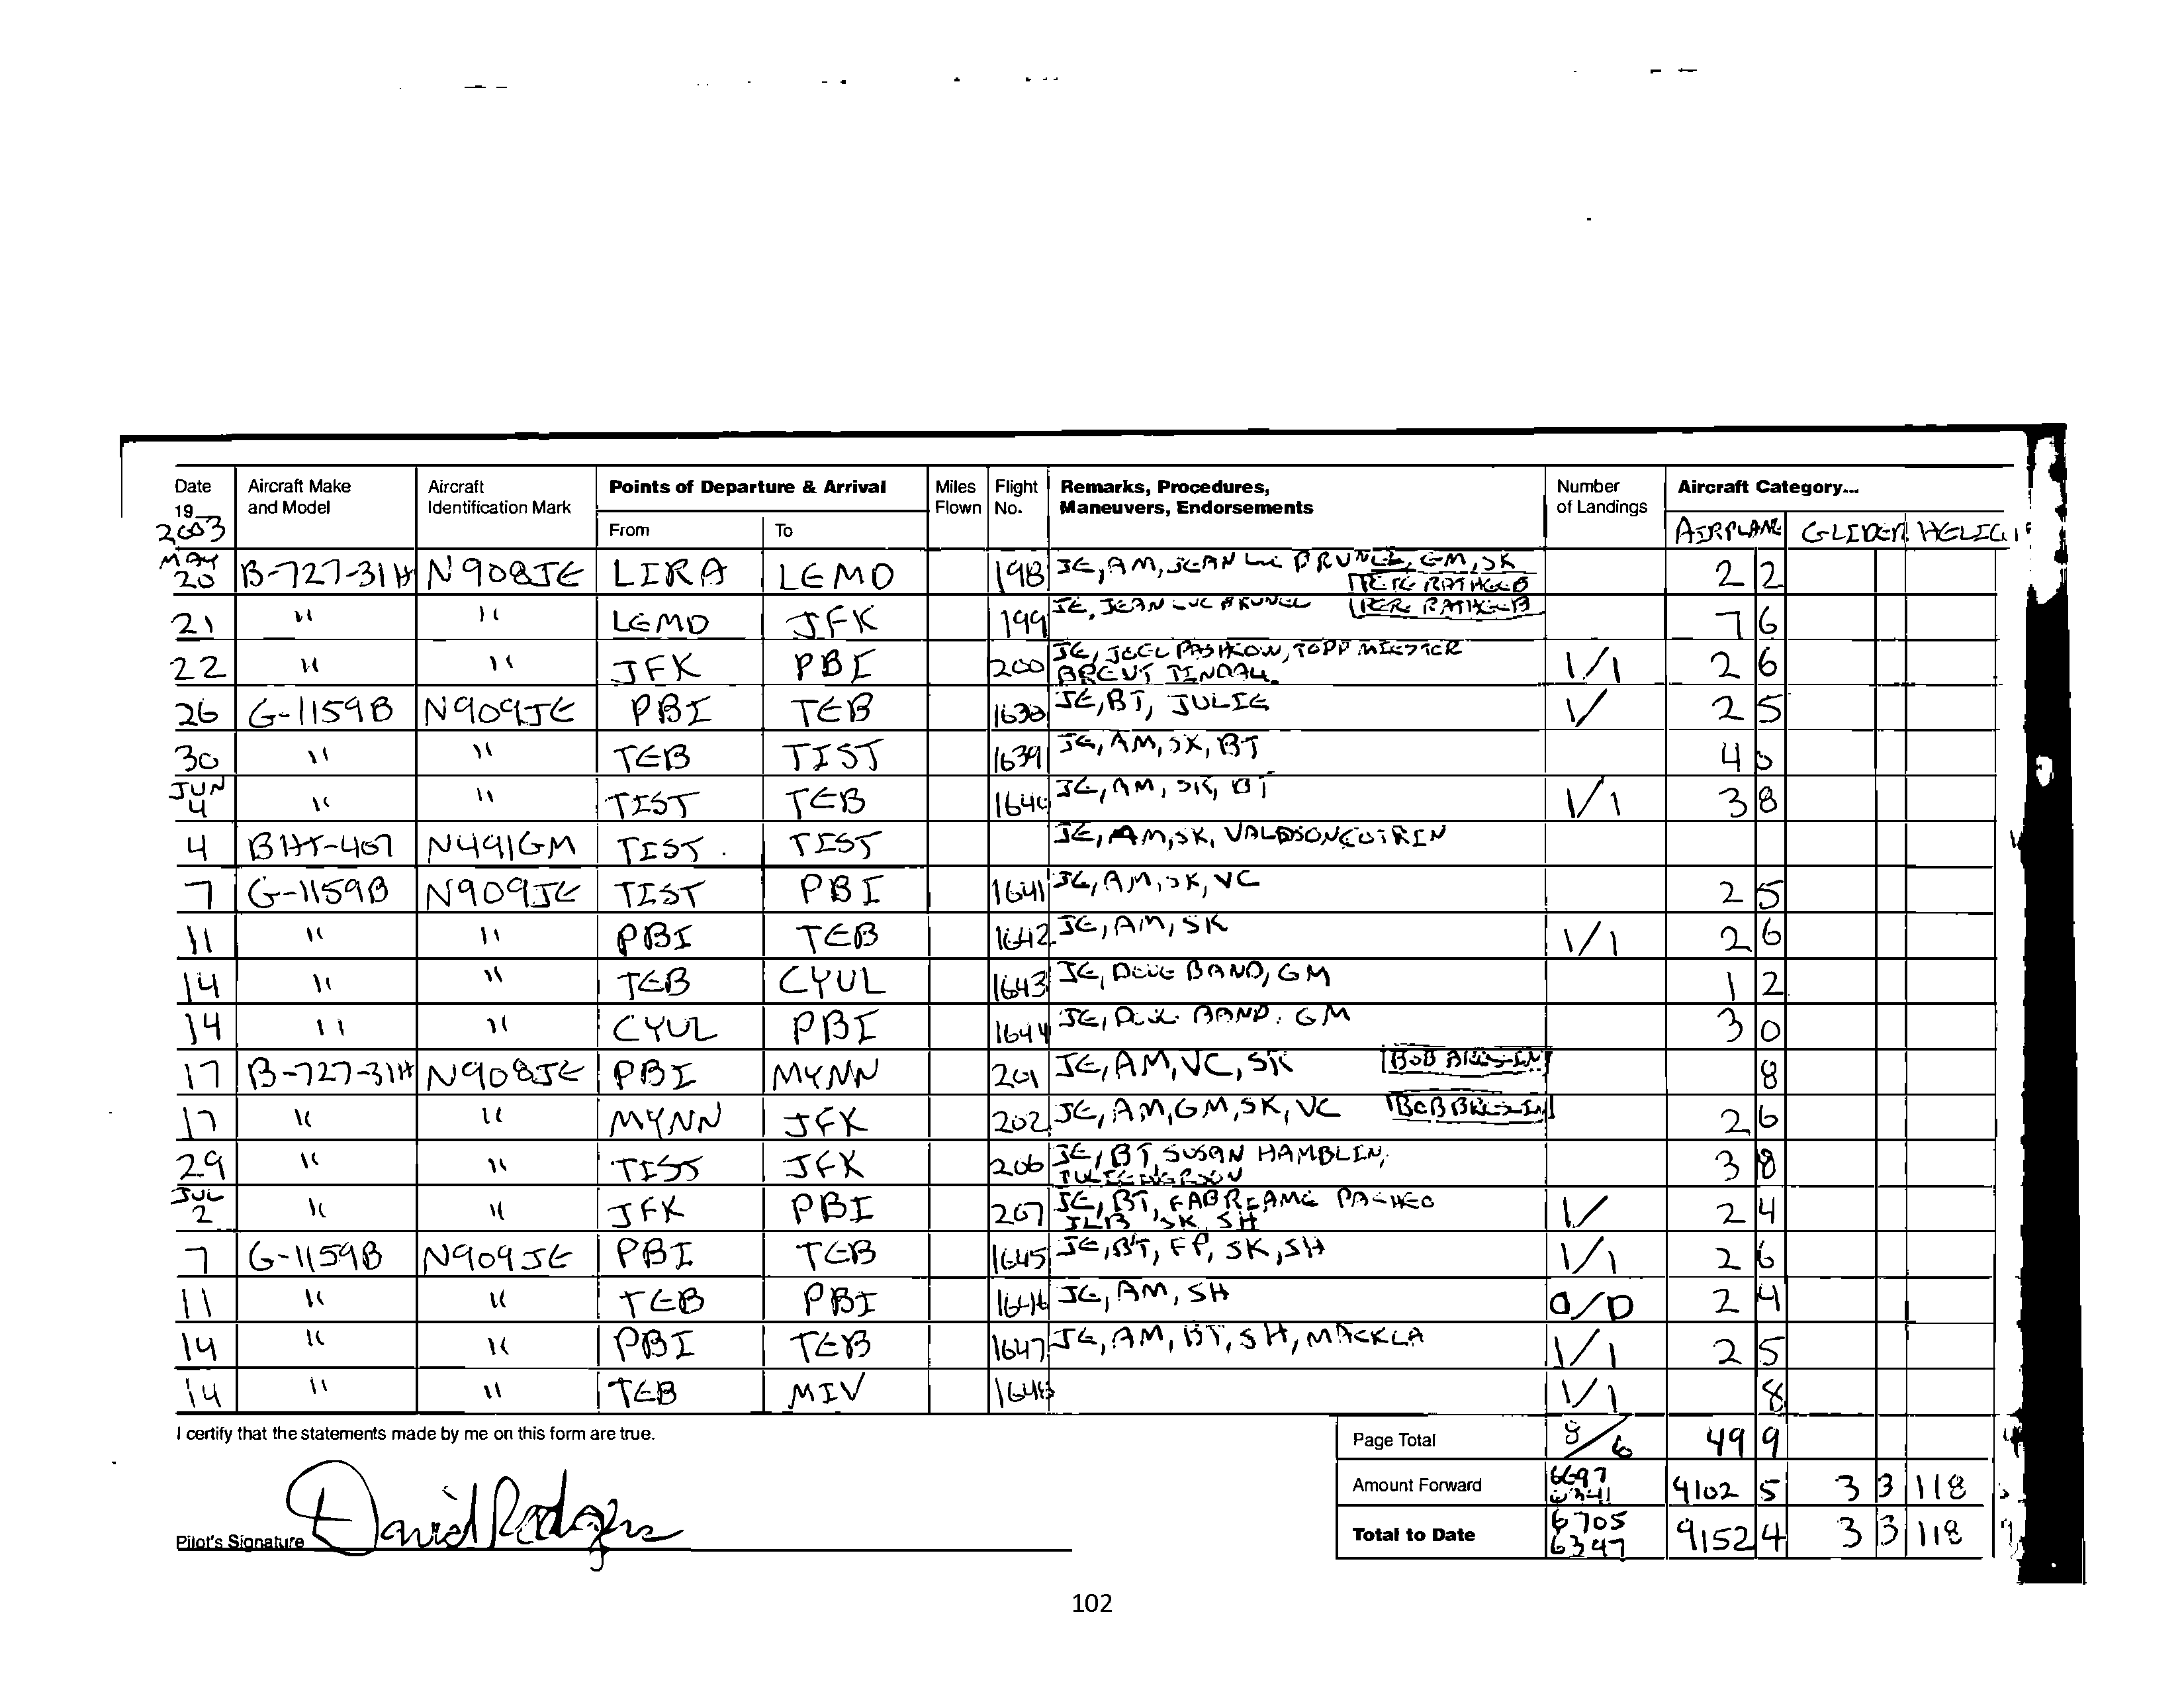 Date Aircraft Make Aircraft Points of Departure & Arrival Miles Flight Remarks, Procedures, Number Aircraft Category...
19 and Model Identification Mark Flown No. Maneuvers, Endorsements of Landings
2003 From To AIRPLANE GLIDER
MAY
20 B-727-31H N908JE LIRA LEMD 198 JE, AM, JEAN LUC BRUNEL, GM, SK 2 2
PETE RATHGEB
21 " " LEMD JFK 199 JE, JEAN LUC BRUNEL PETE RATHGEB 7 6
22 " " JFK PBI 200 JE, JOEL PASHKOW, TODD 1/1 2 6
BRENT TINDALL
26 G-1159B N909JE PBI TEB 1638 JE, BT, JULIE 1/ 2 5
30 " " TEB TIST 1639 JE, AM, SK, BT 4 0
JUN
4 " " TIST TEB 1640 JE, AM, SK, BT 1/1 3 8
4 BHT-407 N491GM TIST TIST JE, AM, SK,
7 G-1159B N909JE TIST PBI 1641 JE, AM, SK, VC 2 5
11 " " PBI TEB 1642 JE, AM, SK 1/1 2 6
14 " " TEB CYUL 1643 JE, DOUG BAND, GM 1 2
14 " " CYUL PBI 1644 JE, BAND, GM 3 0
17 B-727-31H N908JE PBI MYNN 201 JE, AM, VC, SK BOB 8
17 " " MYNN JFK 202 JE, AM, GM, SK, VC BOB 2 6
29 " " TIST JFK 206 JE, BT SUSAN HAMBLIN, 3 8
JUL
2 " " JFK PBI 207 JE, BT, 1/ 2 4
SK, SH
7 G-1159B N909JE PBI TEB 1645 JE, BT, FP, SK, SH 1/1 2 6
11 " " TEB PBI 1646 JE, AM, SH 0/0 2 4
14 " " PBI TEB 1647 JE, AM, BT, SH, MACKLA 1/1 2 5
14 " " TEB MIV 1648 1/1 8
I certify that the statements made by me on this form are true. Page Total 8/6 49 9
Amount Forward 6697 6341 9102 5 3 3 118
Pilot's Signature David Rodgers Total to Date 6705 6347 9152 4 3 3 118
102